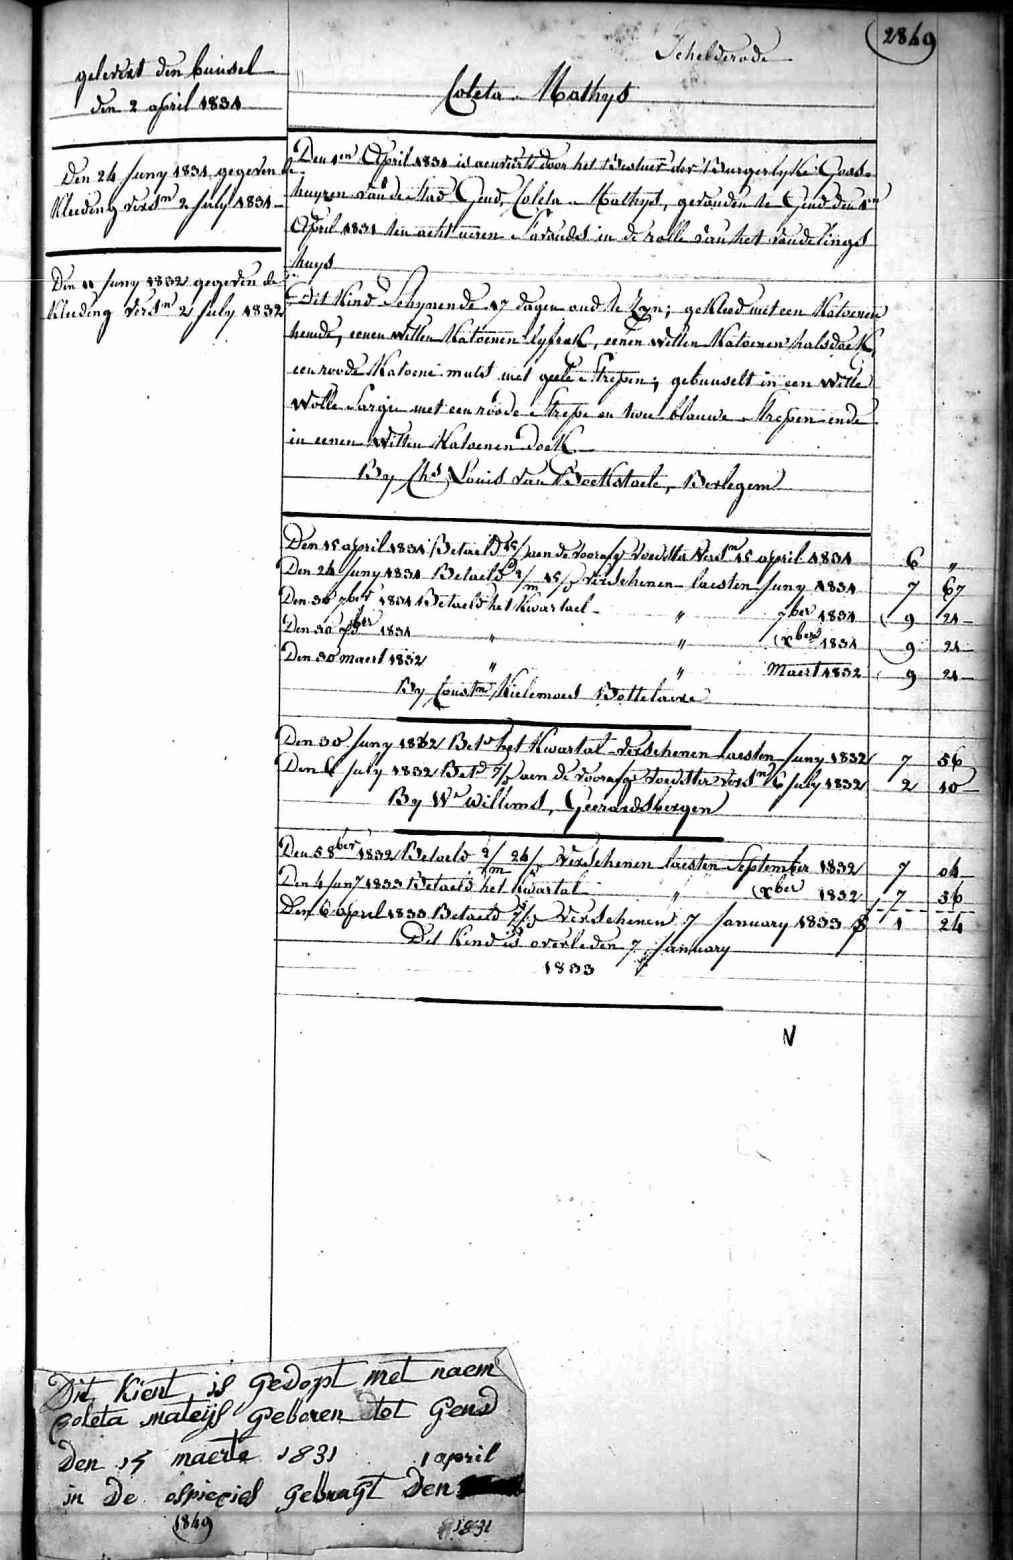 2849
Schelderode
Coleta Mathys
gelevert den bunsel
den 2 april 1831
Den 24 Juny 1831 gegeven de
Kleeding versn 2 July 1831
Den 11 Juny 1832 gegeven de
Kleeding versn 2 July 1832
Den 1en April 1831 is aenveirt door het Bestuer der Burgerlyke Gods-
huyzen van de stad Gend, Coleta Mathys, gevonden te Gend den 1en
April 1831 ten acht uren s'avonds in de rolle van het vondelings
huys
Dit Kind schynende 17 dagen oud te zyn; gekleed met een Katoenen
hemde, eenen witten Katoenen lyfrok, eenen witten Katoenen halsdoek,
een roode Katoene muts met geele strepen; gebunselt in een witte
wolle sargie met een roode strepe en twee blauwe strepen ende
in eenen witten Katoenen doek
By Chs Louis van Bockstaele, Borlegem
Den 15 april 1831 Betaeld 15/ aen de voorafg voedster versn 15 april 1831 6 "
Den 24 Juny 1831 Betaeld 2/m 15/ verschenen laesten Juny 1831 7 67
Den 30 7ber 1831 Betaeld het Kwartael " 7ber 1831 9 21
Den 30 xber 1831 " " xber 1831 9 21
Den 30 maert 1832 " " Maert 1832 9 21
By Constn Kielemoes Bottelaere
Den 30 Juny 1832 Betd het Kwartal verschenen laesten Juny 1832 7 56
Den 6 July 1832 Betd 7/ aen de voorafg voedster versn 6 July 1832 2 10
By We Willems, Geeraerdsbergen
Den 5 8ber 1832 Betaeld 2/m 24/ verschenen laesten September 1832 7 04
Den 4 Jany 1833 Betaeld het Kwartal " xber 1832 7 36
Den 6 april 1833 Betaeld 7/ verschenen 7 January 1833 1 24
Dit Kind is overleden 7 January
1833
N
Dit Kient is gedopt met naem
Coleta mateijs geboren tot gend
Den 15 maerte 1831
1 april
in de ospiecies gebragt den
1849
1831